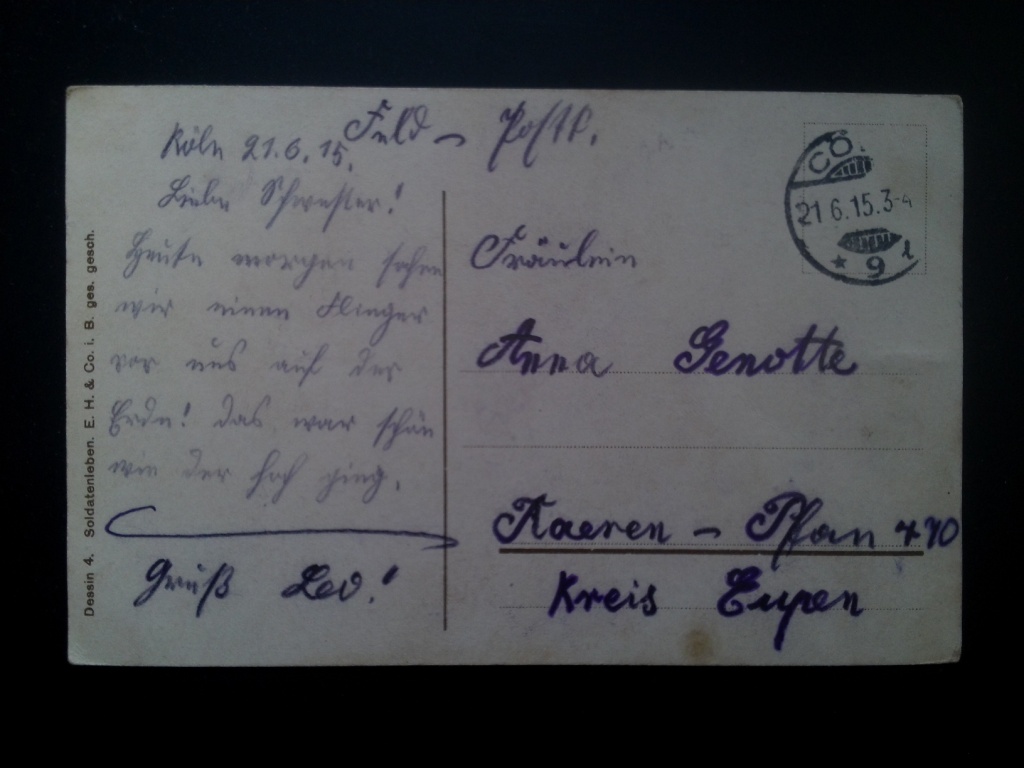 Feld - Postk.
Köln 21.6.15.
Liebe Schwester!
Heute morgen sahen
wir einen Flieger
vor uns auf der
Erde! das war schön
wie der hoch ging.
Gruß Leo!
Fräulein
Anna Genotte
Raeren - Pfau 470
Kreis Eupen
CÖ
21.6.15.3-4
* 9 l
Dessin 4. Soldatenleben. E. H. & Co. i. B. ges. gesch.